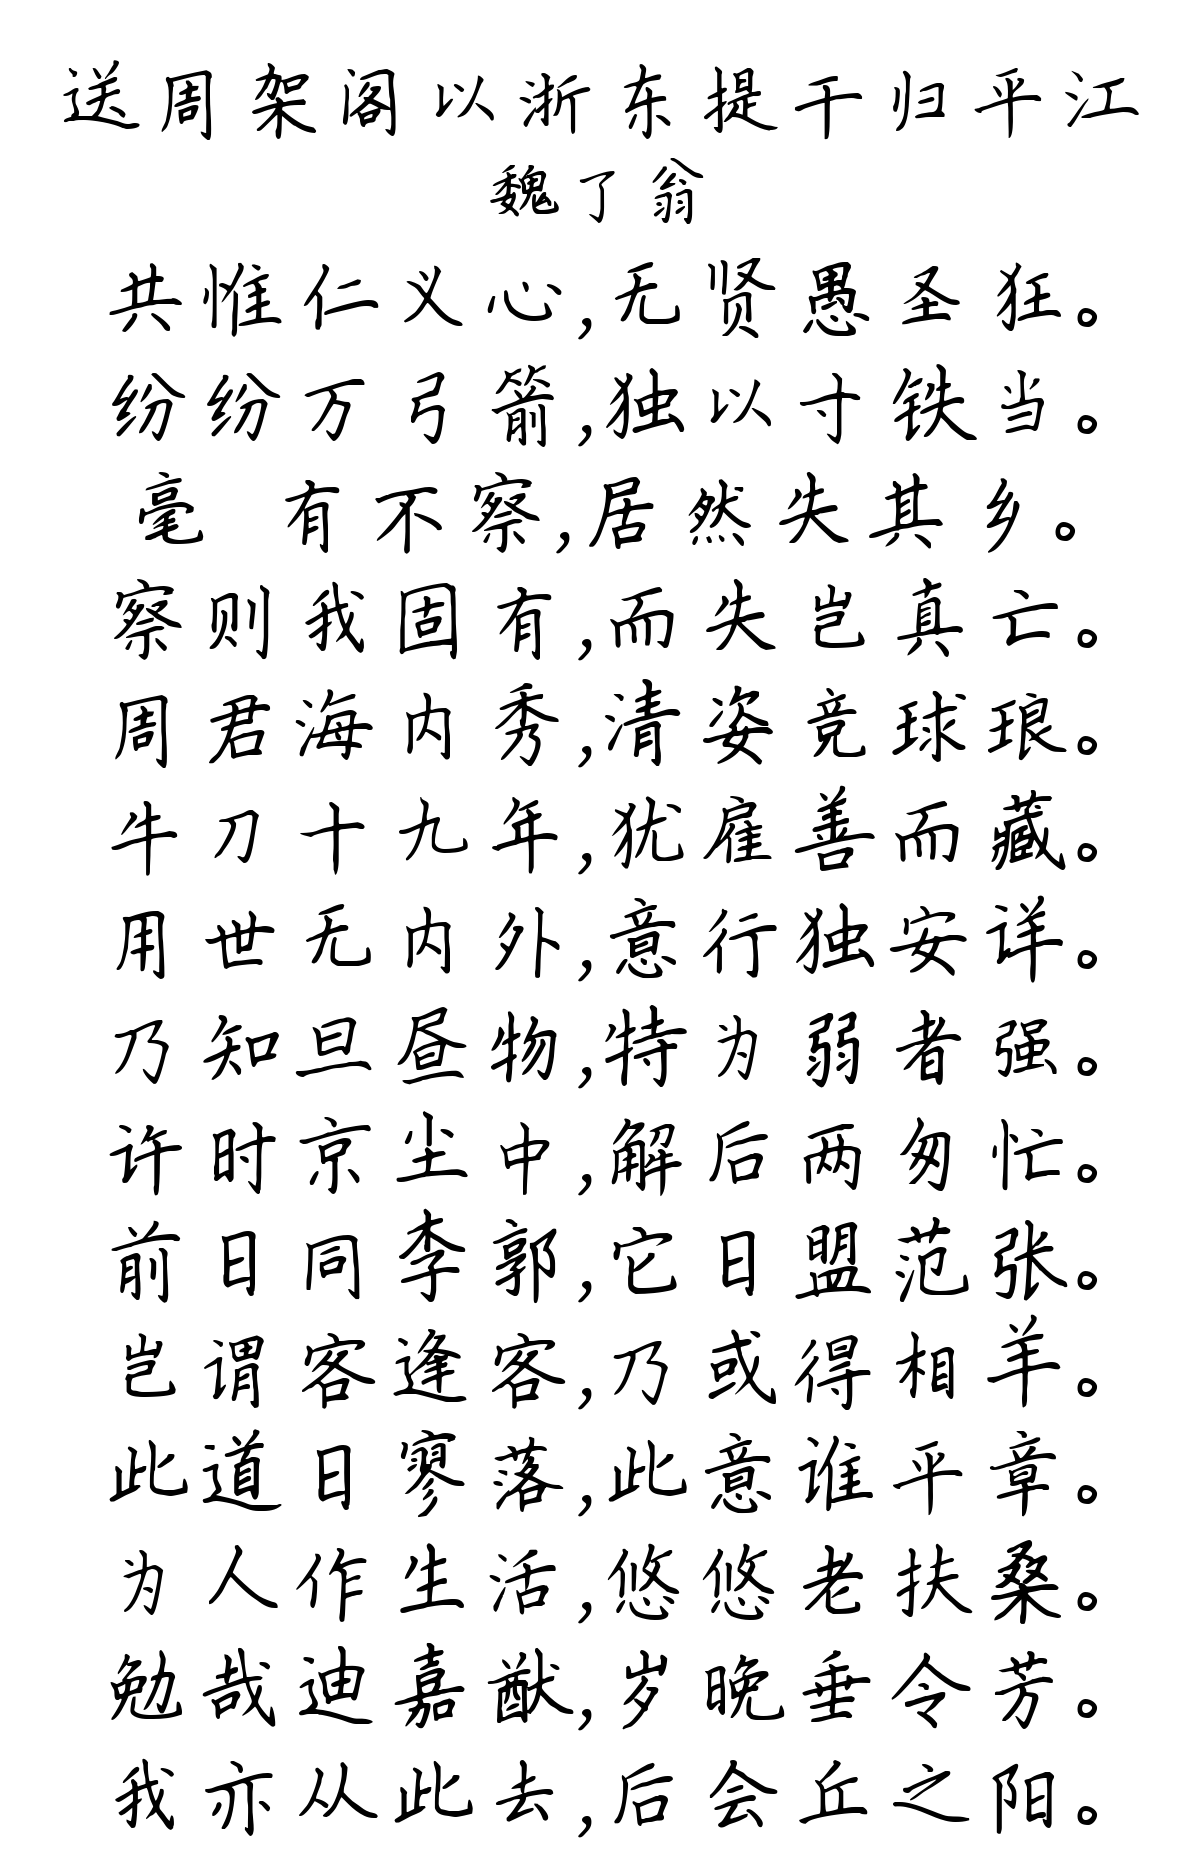 送周架阁以浙东提干归平江
魏了翁
共惟仁义心,无贤愚圣狂。
纷纷万弓箭,独以寸铁当。
毫 有不察,居然失其乡。
察则我固有,而失岂真亡。
周君海内秀,清姿竞球琅。
牛刀十九年,犹雇善而藏。
用世无内外,意行独安详。
乃知旦昼物,特为弱者强。
许时京尘中,解后两匆忙。
前日同李郭,它日盟范张。
岂谓客逢客,乃或得相羊。
此道日寥落,此意谁平章。
为人作生活,悠悠老扶桑。
勉哉迪嘉猷,岁晚垂令芳。
我亦从此去,后会丘之阳。